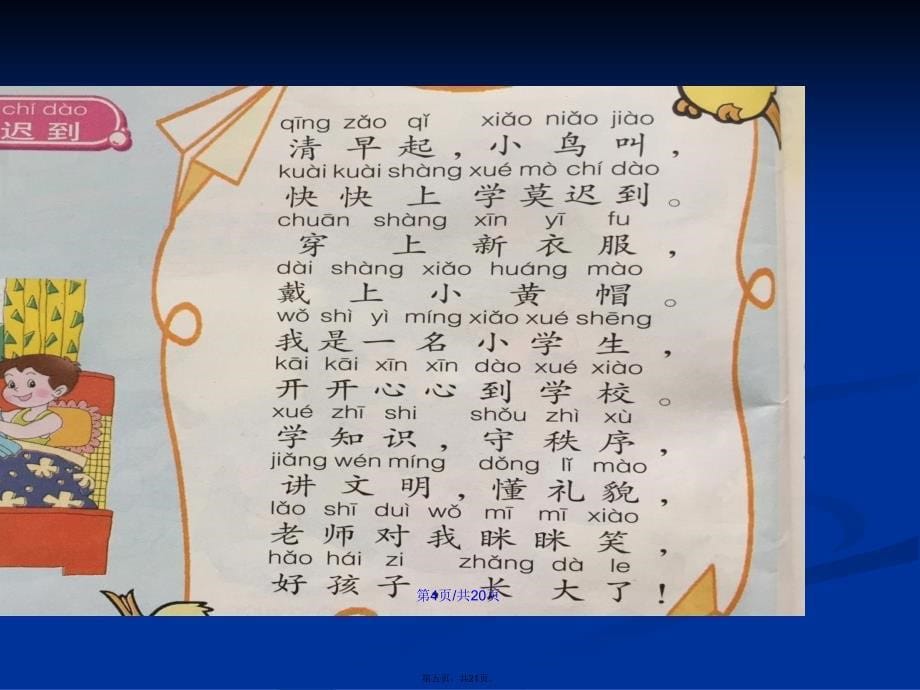 chí dào
迟到
qīng zǎo qǐ xiǎo niǎo jiào
清早起，小鸟叫，
kuài kuài shàng xué mò chí dào
快快上学莫迟到。
chuān shàng xīn yī fu
穿上新衣服，
dài shàng xiǎo huáng mào
戴上小黄帽。
wǒ shì yì míng xiǎo xué shēng
我是一名小学生，
kāi kāi xīn xīn dào xué xiào
开开心心到学校。
xué zhī shi shǒu zhì xù
学知识，守秩序，
jiǎng wén míng dǒng lǐ mào
讲文明，懂礼貌，
lǎo shī duì wǒ mī mī xiào
老师对我眯眯笑，
hǎo hái zi zhǎng dà le
好孩子长大了！
第4页/共20页
第五页，共21页。